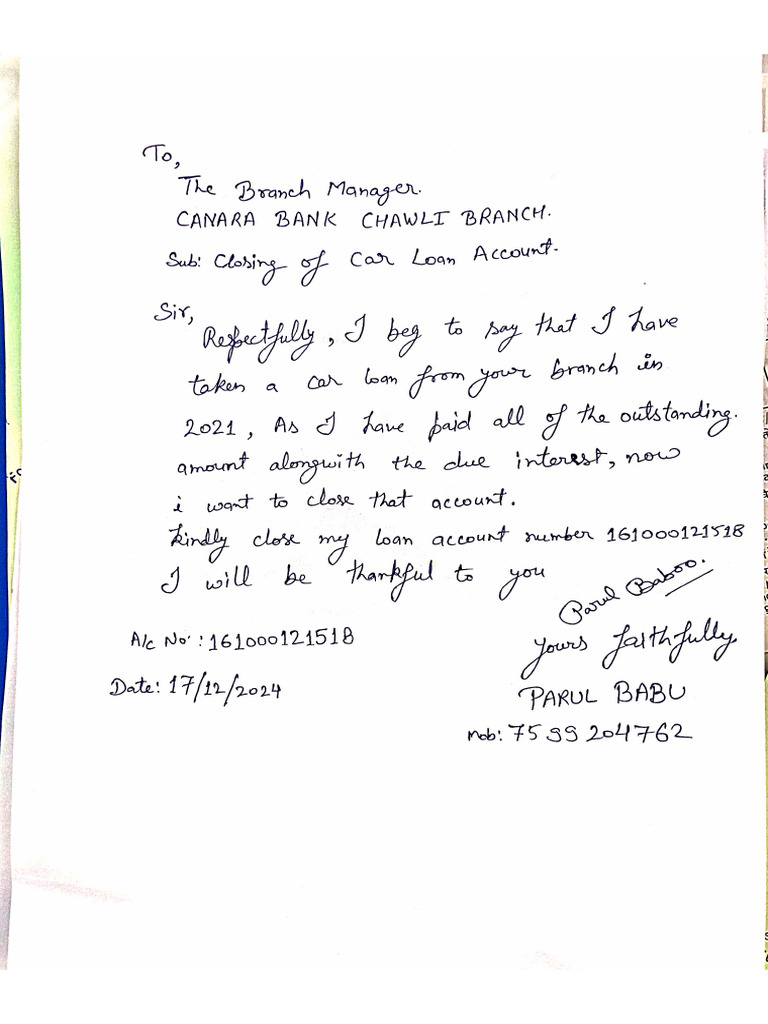 To,
The Branch Manager.
CANARA BANK CHAWLI BRANCH.
Sub: Closing of Car Loan Account.
Sir,
Respectfully, I beg to say that I have
taken a car loan from your branch in
2021, As I have paid all of the outstanding.
amount alongwith the due interest, now
i want to close that account.
kindly close my loan account number 161000121518
I will be thankful to you
Parul Baboo.
Yours faithfully
A/c No: 161000121518
PARUL BABU
Date: 17/12/2024
Mob: 7599204762